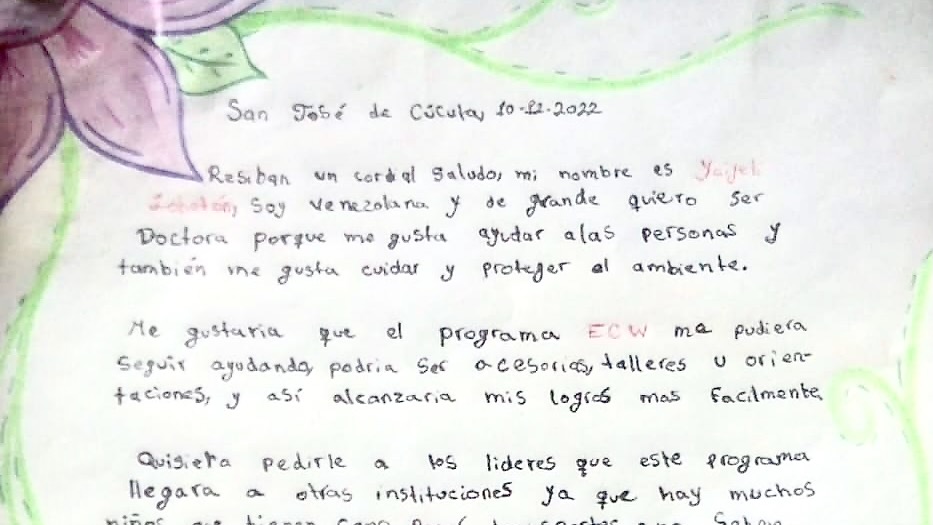 San José de Cúcuta, 10-12-2022
Resiban un cordial saludo, mi nombre es
soy venezolana y de grande quiero ser
Doctora porque me gusta ayudar alas personas y
también me gusta cuidar y proteger el ambiente.
Me gustaria que el programa ECW me pudiera
seguir ayudando, podria ser acesorias, talleres u orien-
taciones, y así alcanzaria mis logros mas facilmente,
Quisiera pedirle a los lideres que este programa
llegara a otras instituciones ya que hay muchos
niños que tienen